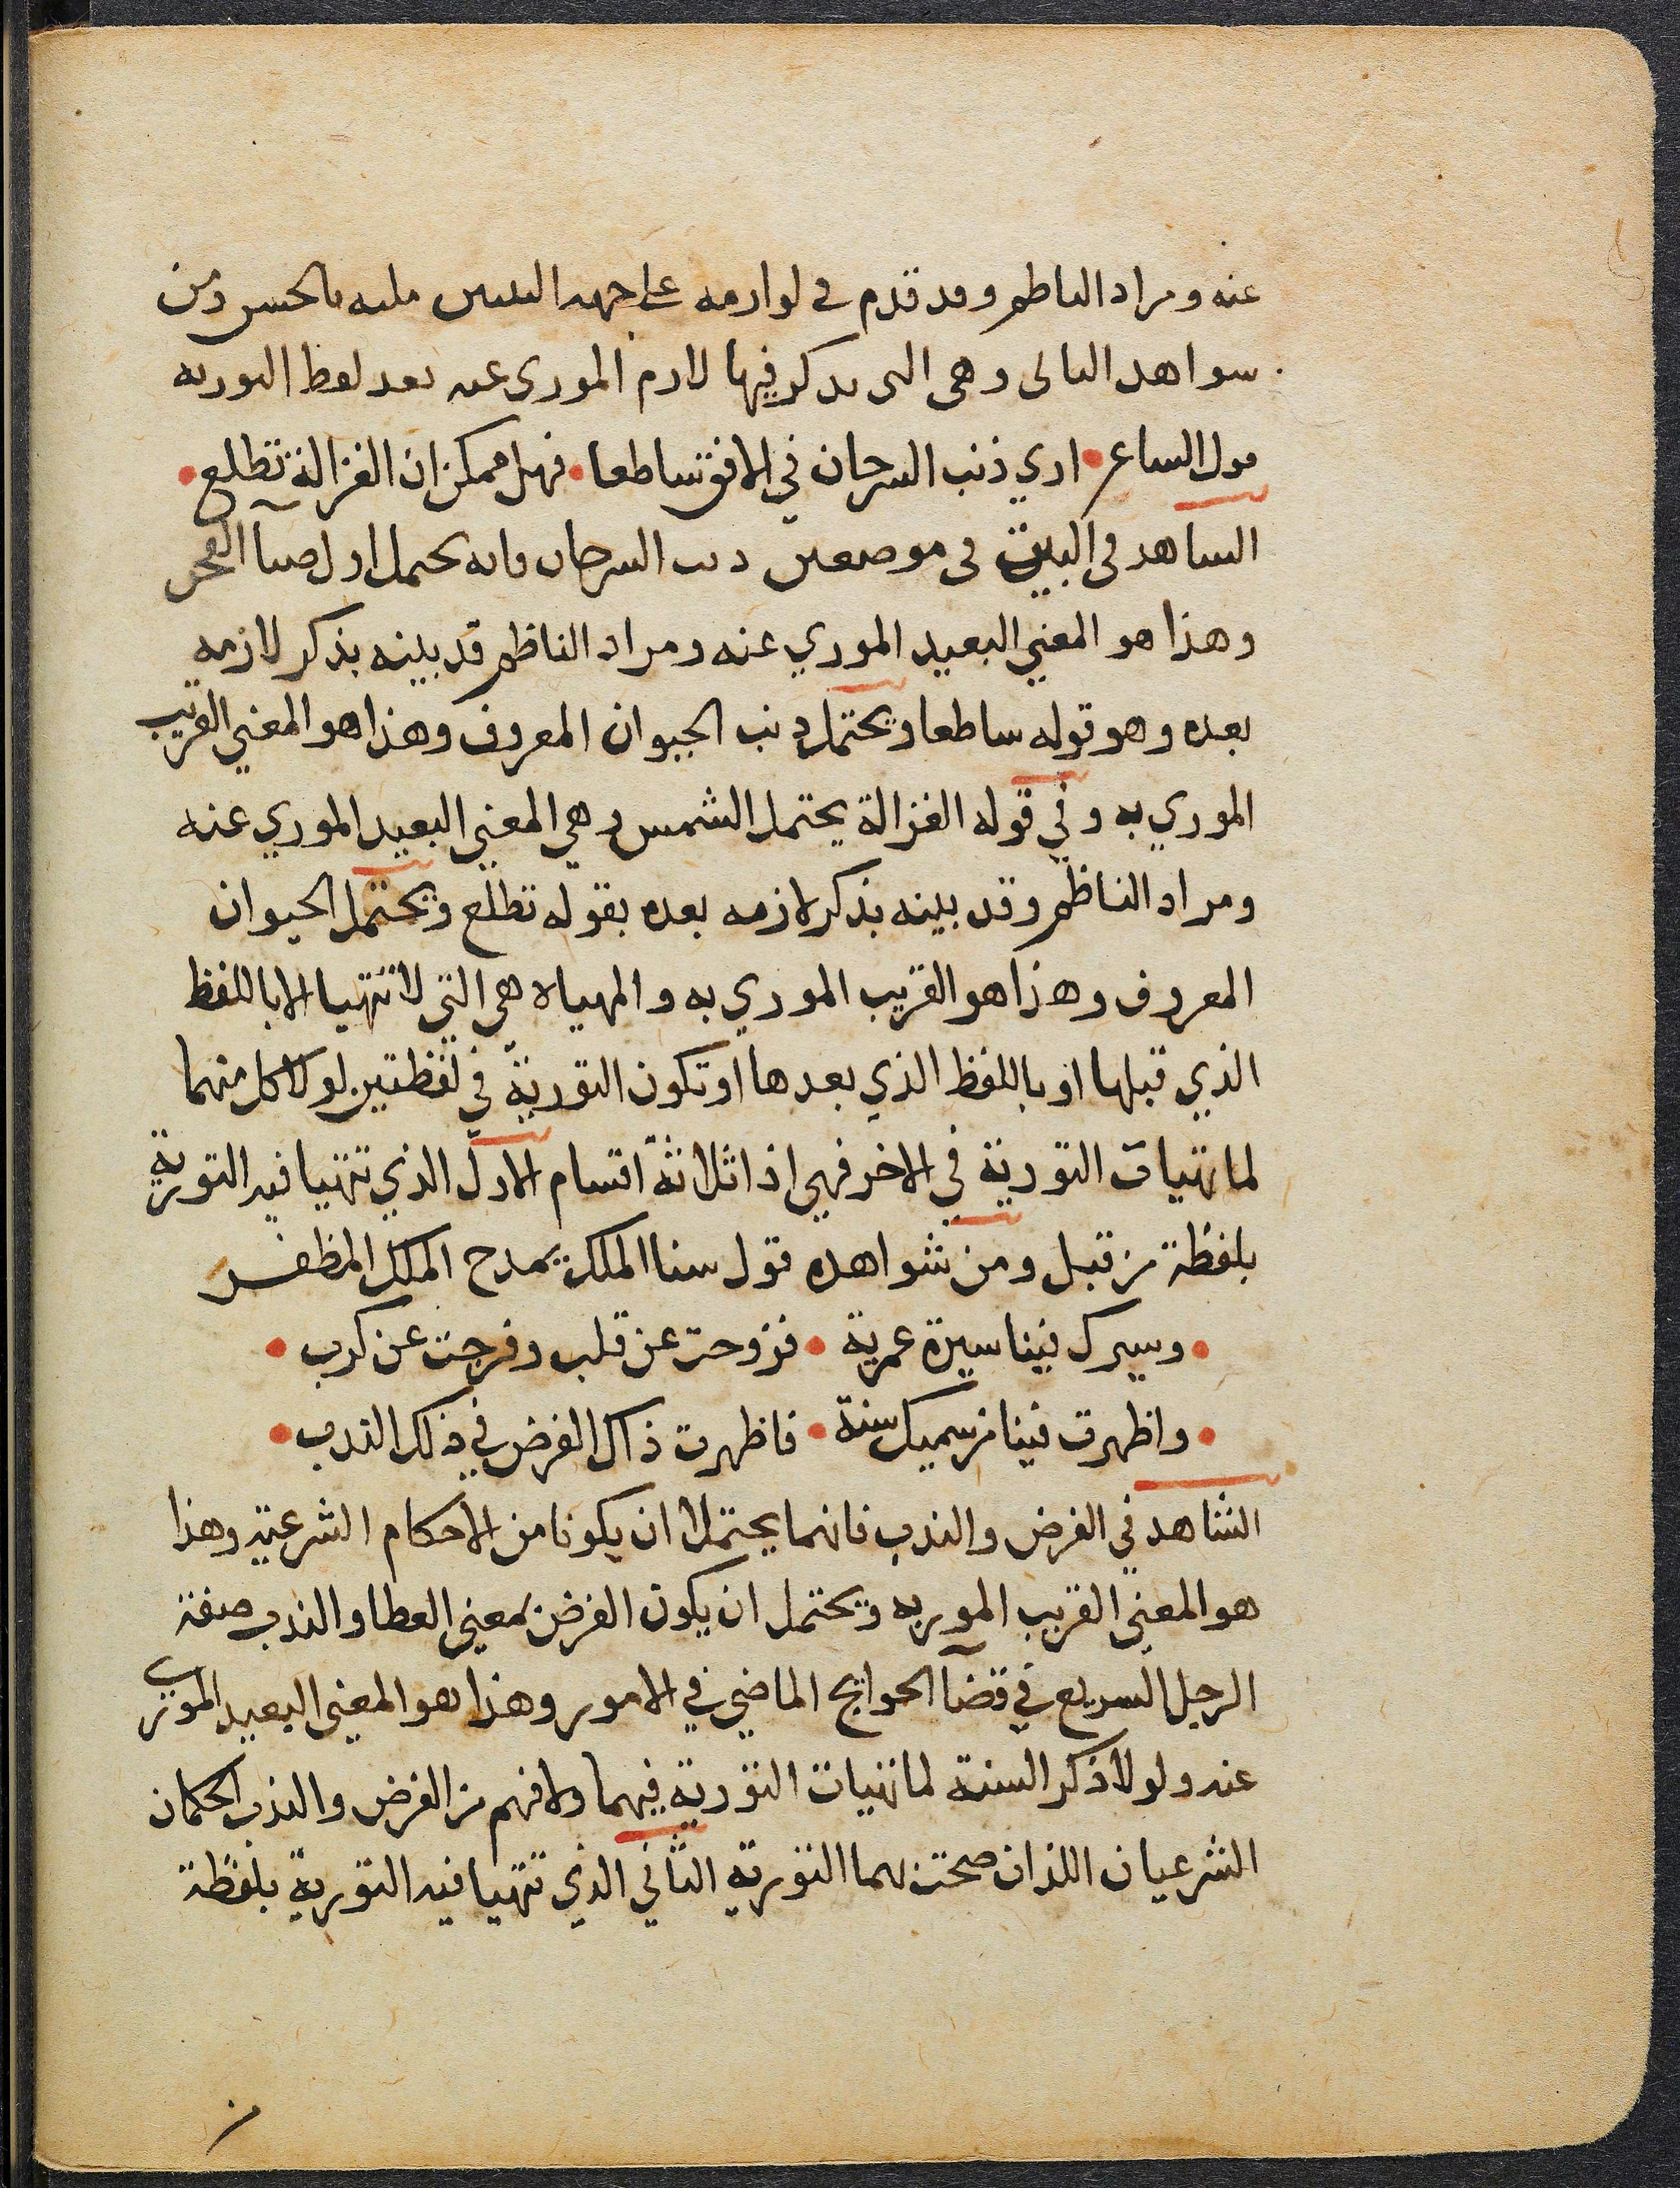 عنه ومراد الناظم وقد قدم في لوازمه على جهة التبيين مليه بالحسن ومن
شواهد الثاني وهي التي يذكر فيها لازم الموري عنه بعد لفظ التورية
قول الشاعر • اري ذنب السرحان في الافق ساطعا • فهل ممكن ان الغزالة تطلع •
الشاهد في البيت في موضعين ذنب السرحان فانه يحتمل اول ضيآ الفجر
وهذا هو المعني البعيد الموري عنه ومراد الناظم قد بينه بذكر لازمه
بعده وهو قوله ساطعا ويحتمل ذنب الحيوان المعروف وهذا هو المعني القريب
الموري به وفي قوله الغزالة يحتمل الشمس وهي المعني البعيد الموري عنه
ومراد الناظم وقد بينه بذكر لازمه بعده بقوله تطلع ويحتمل الحيوان
المعروف وهذا هو القريب الموري به والمهياة هي التي لا تتهيا الا باللفظ
الذي قبلها او باللفظ الذي بعدها او تكون التورية في لفظتين لولا كل منهما
لما تهيات التورية في الاخر فهي اذا ثلاثة اقسام الاول الذي تتهيا فيه التورية
بلفظة من قبل ومن شواهده قول سنا الملك يمدح الملك المظفر
• وسيرك فينا سيرة عمرية • فروحت عن قلب وفرجت عن كرب •
• واظهرت فينا من سميك سنة • فاظهرت ذاك الفرض في ذلك الندب •
الشاهد في الفرض والندب فانهما يحتملا ان يكونا من الاحكام الشرعية وهذا
هو المعني القريب المور به ويحتمل ان يكون الفرض بمعني العطا والندب صفة
الرجل السريع في قضآ الحوايج الماضي في الامور وهذا هو المعني البعيد الموري
عنه ولولا ذكر السنة لما تهيات التورية فيهما ولا فهم من الفرض والندب الحكمان
الشرعيان اللذان صحت بهما التورية الثاني الذي تتهيا فيه التورية بلفظة
من